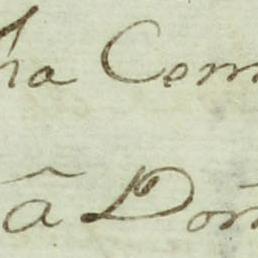 ha Com
ã Dom